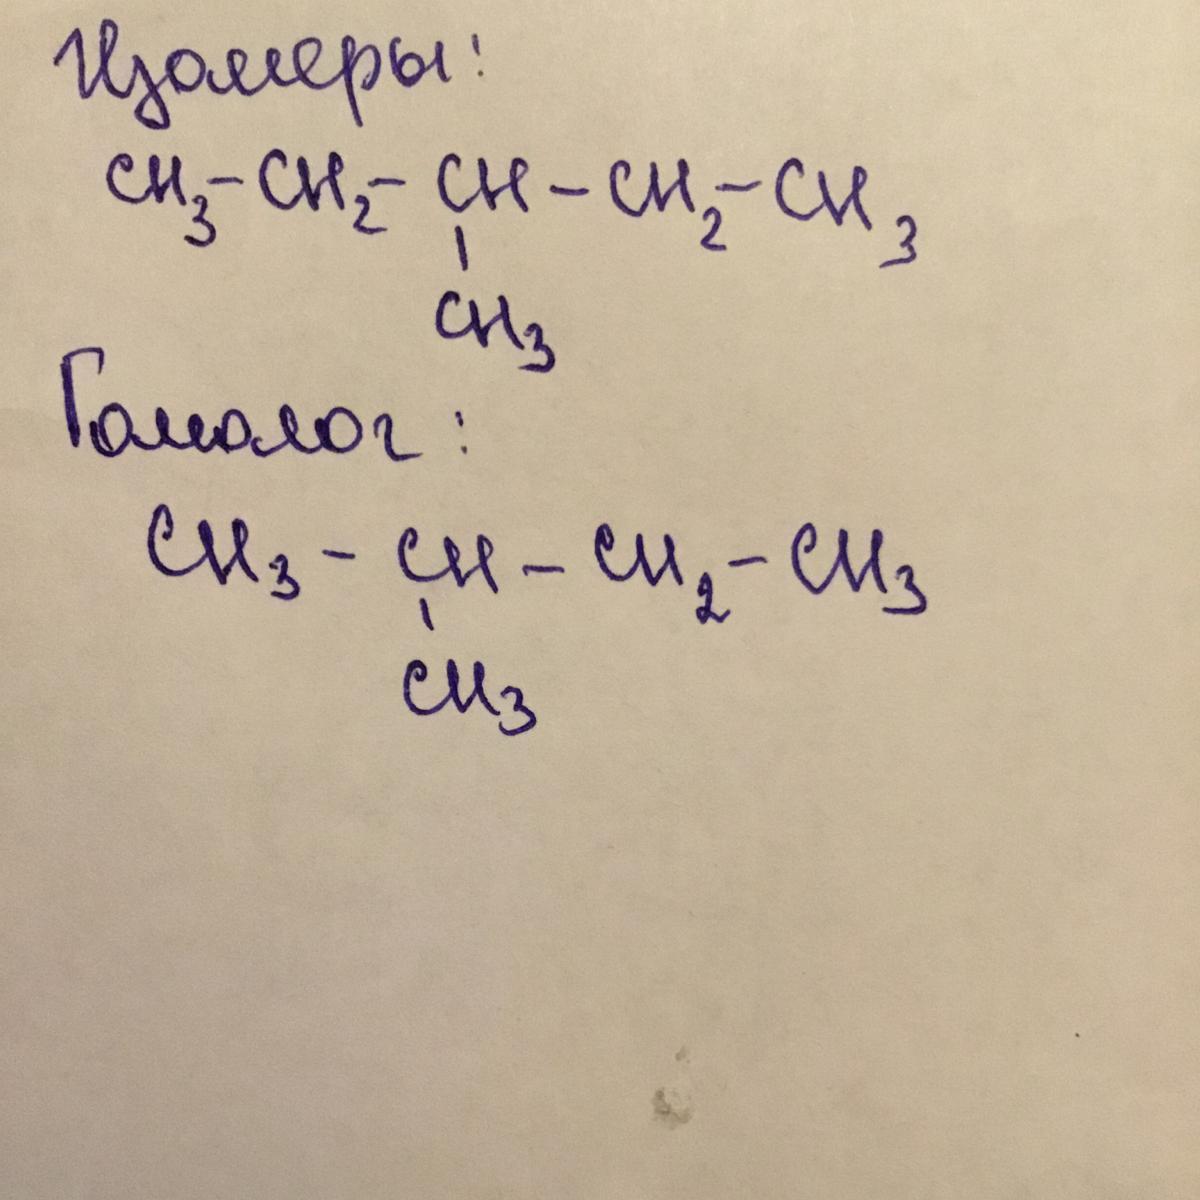 Изомеры:
CH₃-CH₂-CH-CH₂-CH₃
|
CH₃
Гомолог:
CH₃-CH-CH₂-CH₃
|
CH₃